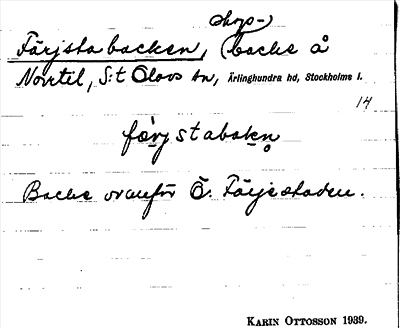 skogs-)
Färjstabacken, (backe å
Norrtil, S:t Olovs sn, Ärlinghundra hd, Stockholms l.
14
færjstabakn
Backe ovanför Ö. Färjestaden.
KARIN OTTOSSON 1939.